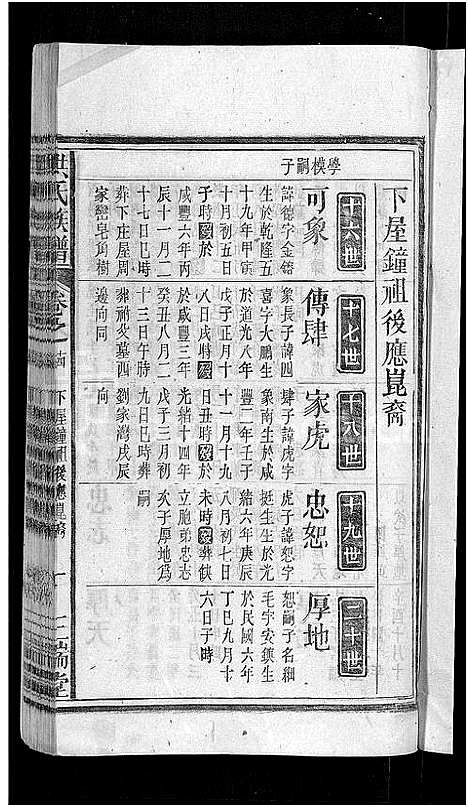 下屋鐘祖後應崑裔
學模嗣子
十六世
可象
諱德字金鎔
生於乾隆五
十九年甲寅
十月初五日
子時歿於
咸豐六年丙
辰十一月二
十七日巳時
葬下庄屋周
家巒皂角樹
十七世
傳肆
象長子諱四
喜字大鵬生
於道光八年
戊子正月十
八日戌時歿
於咸豐三年
癸丑八月二
十三日午時
葬祖父墓四
邊向同
十八世
家虎
肆子諱虎字
象南生於咸
豐二年壬子
十一月十九
日丑時歿於
光緒十四年
戊子三月初
九日巳時葬
劉家灣戌辰
向
十九世
忠恕
虎子諱恕字
挺生生於光
緒六年庚辰
八月初七日
未時歿葬缺
立胞弟忠志
次子厚地為
嗣
二十世
厚地
恕嗣子名綱
毛字安鎮生
於民國六年
丁巳九月十
六日子時
洪氏族譜
卷之
下屋鐘祖後應崑裔